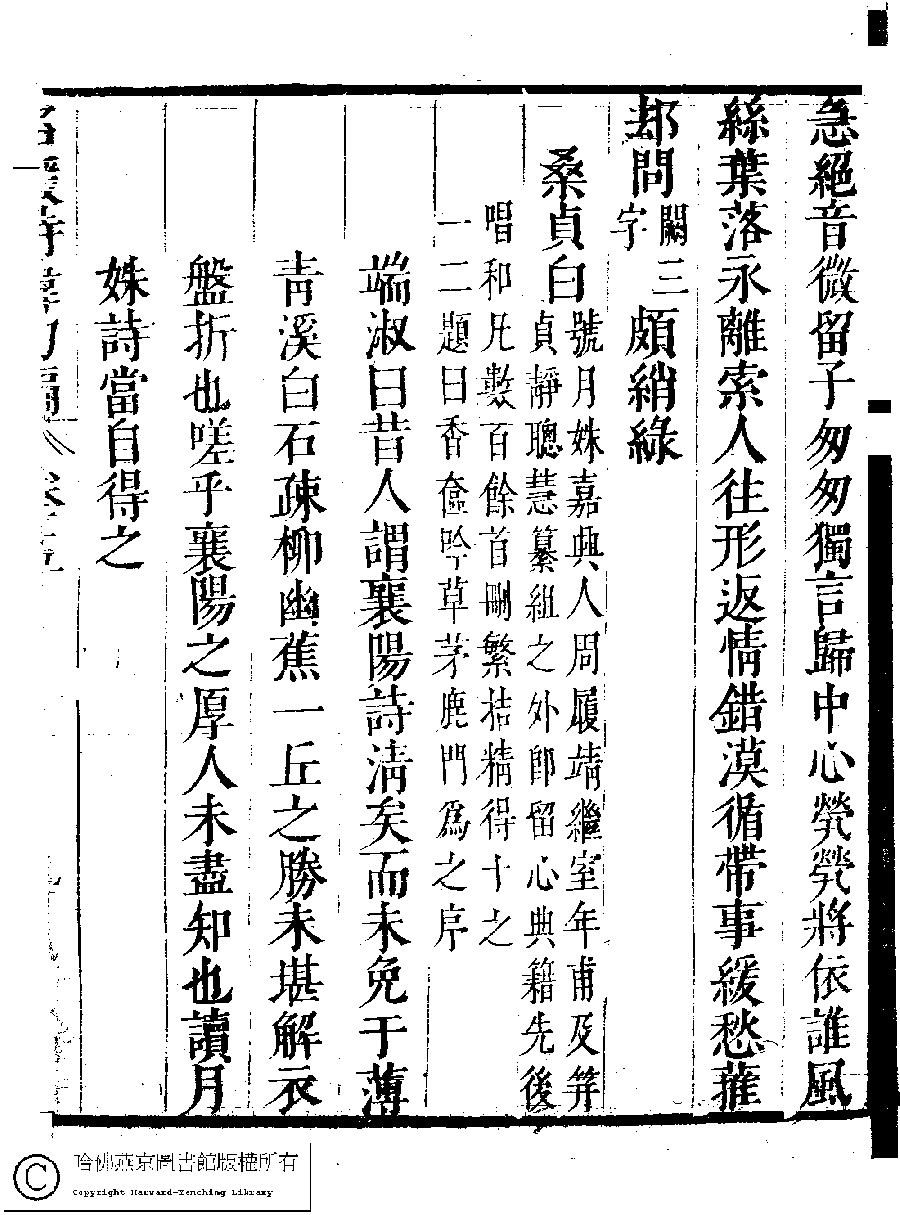 急絕音微留子匆匆獨言歸中心煢煢將依誰風
絲葉落永離索人往形返情錯漠循帶事緩愁摧
却問闕三字頗綃綠
桑貞白
號月姝嘉興人周履靖繼室年甫及笄
貞靜聰慧纂組之外卽留心典籍先後
唱和凡數百餘首刪繁拮精得十之
一二題曰香奩吟草茅鹿門爲之序
端淑曰昔人謂襄陽詩淸矣而未免于薄
靑溪白石疎柳幽蕉一丘之勝未堪解衣
盤折也嗟乎襄陽之厚人未盡知也讀月
姝詩當自得之
名媛詩緯初編
哈佛燕京圖書館版權所有
Copyright Harvard-Yenching Library